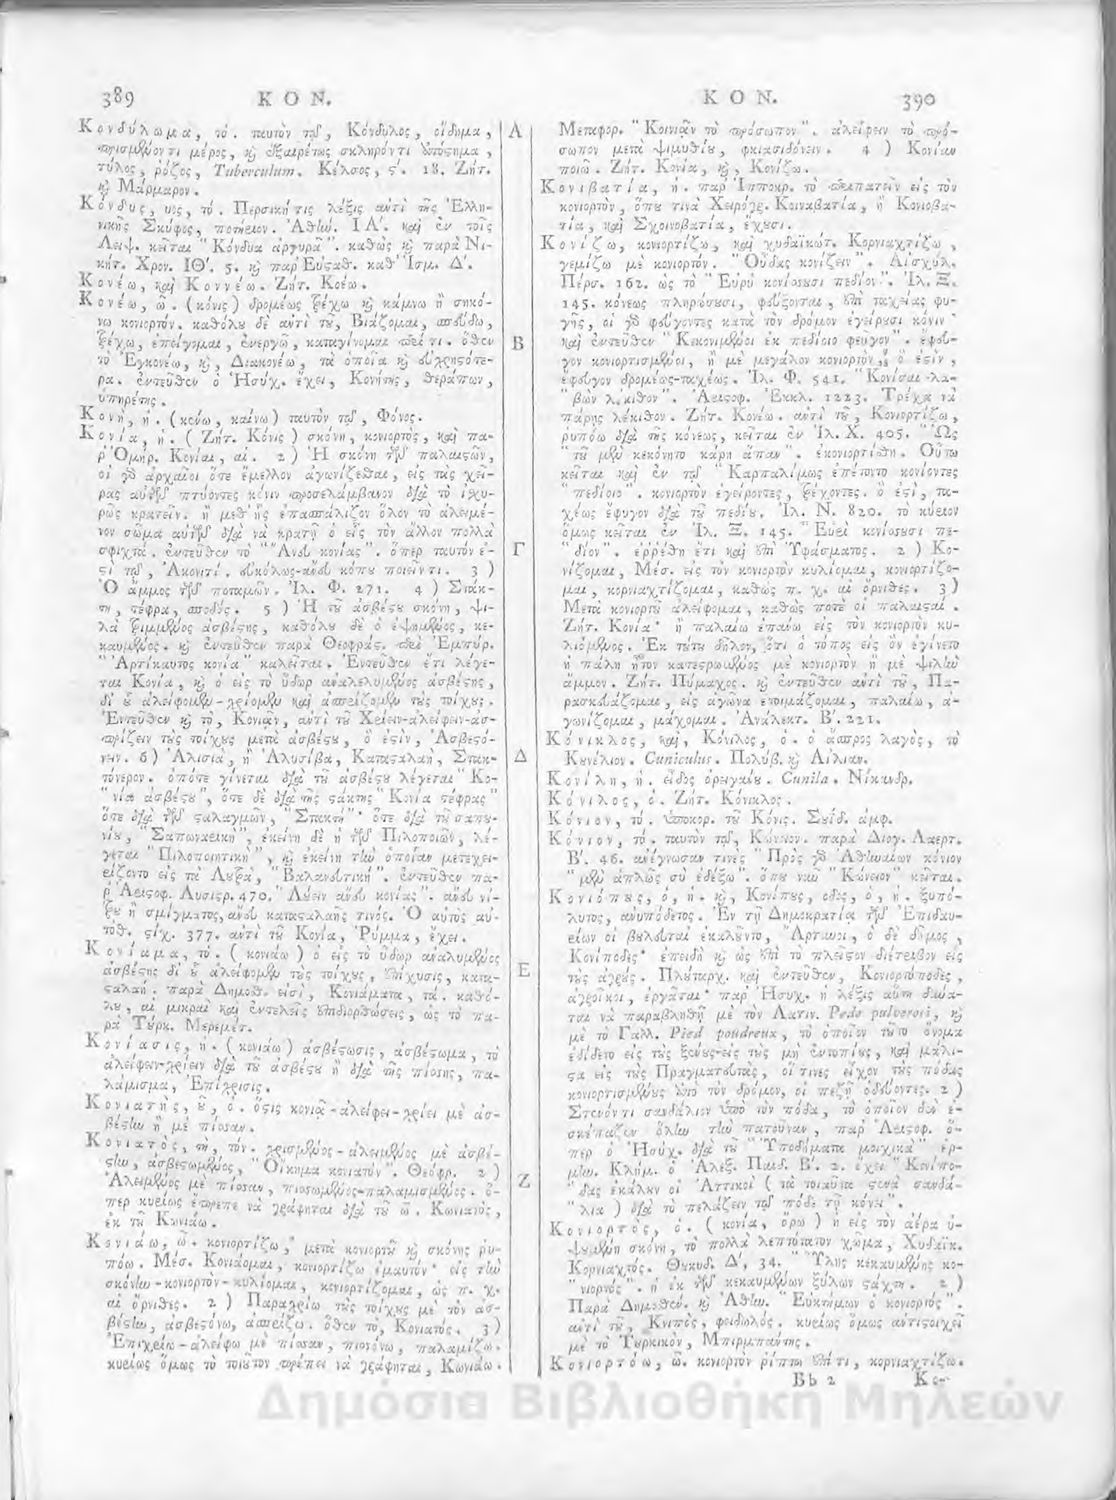 389 ΚΟΝ.
Κονδύλωμα, τό. ταυτὸν τῷ, Κόνδυλος, οἴδημα,
μέρος, καὶ σκληρόν τι ἀπόστημα,
τύλος, ρόζος, Tuberculum. Κέλσος, ς΄. 18. Ζήτ.
καὶ Μάρμαρον.
Κόνδυ, υος, τό. Περσική τις λέξις ἀντὶ τῆς Ἑλλη-
νικῆς Σκύφος, ποτήριον. Ἀθήν. ΙΑ΄. καὶ ἐν τοῖς
κεῖται "Κόνδυα ἀργυρᾶ". καθὼς καὶ παρὰ Νι-
κήτ. Χρον. ΙΘ΄. 5. καὶ παρ' Εὐσταθ. καθ' Ἰσμ. Δ΄.
Κονέω, καὶ Κοννέω. Ζήτ. Κοέω.
Κονέω, ῶ. (κόνις) δρομέως τρέχω καὶ κάμνω ἢ σηκό-
νω κονιορτόν. καθόλου δὲ ἀντὶ τοῦ, Βιάζομαι, σπεύδω,
τρέχω, ἐπείγομαι, ἐνεργῶ, καταγίνομαι περί τι. ὅθεν
τὸ Ἐγκονέω, καὶ, Διακονέω, τὰ ὁποῖα καὶ εὐχρηστότε-
ρα. ἐντεῦθεν ὁ Ἡσύχ. ἔχει, Κονήτης, θεράπων,
ὑπηρέτης.
Κονὴ, ἡ. (κενόω, καίνω) ταυτὸν τῷ, Φόνος.
Κονία, ἡ. (Ζήτ. Κόνις) σκόνη, κονιορτὸς, καὶ πα-
ρ' Ὁμήρ. Κονίαι, αἱ. 2) Ἡ σκόνη τῶν παλαιστῶν,
οἱ γὰρ ἀρχαῖοι ὅτε ἔμελλον ἀγωνίζεσθαι, εἰς τὰς χεῖ-
ρας αὐτῶν πτύοντες κόνιν προσελάμβανον διὰ τὸ ἰσχυ-
ρῶς κρατεῖν. ἢ μεθ' ἧς ἐπασπάλιζον ὅλον τὸ ἀλειμέ-
νον σῶμα αὐτῶν διὰ νὰ κρατῇ ὁ εἷς τὸν ἄλλον πολλὰ
σφιχτά. ἐντεῦθεν τὸ "Ἄνευ κονίας". ὅπερ ταυτὸν ἐ-
στὶ τῷ, Ἀκονιτί. εὐκόλως-ἄνευ κόπου ποιεῖν τι. 3)
Ὁ ἄμμος τῶν ποταμῶν. Ἰλ. Φ. 271. 4) Στάκ-
τη, τέφρα, σποδός. 5) Ἡ τοῦ ἀσβέστου σκόνη, ψι-
λὰ τριμμένος ἀσβέστης, καθόλου δὲ ὁ ἑψημένος, κε-
καυμένος. καὶ ἐντεῦθεν παρὰ Θεοφράς. περὶ Ἐμπύρ.
"Ἀρτίκαυτος κονία" καλεῖται. Ἐντεῦθεν ἔτι λέγε-
ται Κονία, καὶ ὁ εἰς τὸ ὕδωρ ἀναλελυμένος ἀσβέστης,
δι' οὗ ἀλείφομεν-χρίομεν καὶ ἀσπρίζομεν τοὺς τοίχους.
Ἐντεῦθεν καὶ τὸ, Κονιᾶν, ἀντὶ τοῦ Χρίειν-ἀλείφειν-ἀσ-
πρίζειν τοὺς τοίχους μετὰ ἀσβέστου, ὅ ἐστιν, Ἀσβεστό-
νειν. 6) Ἀλισία, ἢ Ἀλυσίβα, Κατασταλακὴ, Στακ-
τόνερον. ὁπότε γίνεται διὰ τοῦ ἀσβέστου λέγεται "Κο-
"νία ἀσβέστου", ὅτε δὲ διὰ τῆς στάκτης "Κονία τέφρας"
ὅτε διὰ τῶν σταλαγμῶν, "Στακτή" ὅτε διὰ τοῦ σαπου-
νίου, "Σαπωναρική", ἐκείνη δὲ ἡ τῶν Πιλοποιῶν, λέ-
γεται "Πιλοποιητική", καὶ ἐκείνη τὴν ὁποίαν μετεχει-
ρίζοντο εἰς τὰ Λουτρὰ, "Βαλανευτική". ἐντεῦθεν πα-
ρ' Ἀριστοφ. Λυσιστρ. 470. "Λούειν ἄνευ κονίας". ἄνευ νί-
τρου ἢ σμίγματος, ἄνευ τινός. Ὁ αὐτὸς αὐ-
τόθ. στίχ. 377. ἀντὶ τοῦ Κονία, Ῥύμμα, ἔχει.
Κονίαμα, τό. (κονιάω) ὁ εἰς τὸ ὕδωρ ἀναλυμένος
ἀσβέστης δι' οὗ ἀλείφομεν τοὺς τοίχους, ἐπίχυσις,
παρὰ Δημοσθ. εἰσὶ, Κονιάματα, τά. καθό-
λου, αἱ μικραὶ καὶ ἐντελεῖς ἐπιδιορθώσεις, ὡς τὸ πα-
ρὰ Τούρκ. Μερεμέτ.
Κονίασις, ἡ. (κονιάω) ἀσβέστωσις, ἀσβέστωμα, τὸ
ἀλείφειν-χρίειν διὰ τοῦ ἀσβέστου ἢ διὰ τῆς πίσσης, πα-
λάμισμα, Ἐπίχρισις.
Κονιατὴς, οῦ, ὁ. ὅστις κονιᾷ-ἀλείφει-χρίει μὲ ἀσ-
βέστην ἢ μὲ πίσσαν.
Κονιατὸς, τὴ, τόν. χρισμένος-ἀλειμμένος μὲ ἀσβέ-
στην, ἀσβεστωμένος, "Οἴκημα κονιατόν". Θεόφρ. 2)
Ἀλειμμένος μὲ πίσσαν, πισσωμένος-παλαμισμένος. ὅ-
περ κυρίως ἔπρεπε νὰ γράφηται διὰ τοῦ ω. Κωνιατὸς,
ἐκ τοῦ Κωνιάω.
Κονιάω, ῶ. κονιορτίζω, μετὰ κονιορτοῦ καὶ σκόνης ῥυ-
πόω. Μέσ. Κονιάομαι, κονιορτίζω ἐμαυτόν· εἰς τὴν
σκόνην-κονιορτὸν-κυλίομαι, κονιορτίζομαι, ὡς π. χ.
αἱ ὄρνιθες. 2) Παραχρίω τοὺς τοίχους μὲ τὸν ἀσ-
βέστην, ἀσβεστόνω, ἀσπρίζω. ὅθεν τὸ, Κονιατός. 3)
Ἐπιχρίω-ἀλείφω μὲ πίσσαν, πισσόνω, παλαμίζω.
κυρίως ὅμως τὸ τοιοῦτον πρέπει νὰ γράφηται, Κωνιάω.
Α
Β
Γ
Δ
Ε
Ζ
ΚΟΝ. 390
Μεταφορ. "Κονιᾶν τὸ πρόσωπον". ἀλείφειν τὸ πρό-
σωπον μετὰ ψιμυθίου, φκιασιδόνειν. 4) Κονίαν
ποιῶ. Ζήτ. Κονία, καὶ, Κονίζω.
Κονιβατία, ἡ. παρ' Ἱπποκρ. τὸ περιπατεῖν εἰς τὸν
κονιορτὸν, ὅπου τινὰ Χειρόγρ. Κοιναβατία, ἢ Κονιοβα-
τία, καὶ Σχοινοβατία, ἔχουσι.
Κονίζω, κονιορτίζω, καὶ χυδαϊκώτ. Κορνιαχτίζω,
γεμίζω μὲ κονιορτόν. "Οὖδας κονίζειν". Αἰσχύλ.
Πέρσ. 162. ὡς τὸ "Εὐρὺ κονίουσι πεδίον". Ἰλ. Ξ.
145. κόνεως πληροῦσι, φεύγονται, ἐπὶ ταχείας φυ-
γῆς, οἱ γὰρ φεύγοντες κατὰ τὸν δρόμον ἐγείρουσι κόνιν·
καὶ ἐντεῦθεν "Κεκονιμένοι ἐκ πεδίοιο φεῦγον". ἔφευ-
γον κονιορτισμένοι, ἢ μὲ μεγάλον κονιορτὸν, ὅ ἐστιν,
ἔφευγον δρομέως-ταχέως. Ἰλ. Φ. 541. "Κονίσαι λα-
"βὼν λέκιθον". Ἀριστοφ. Ἐκκλ. 1223. Τρέχα νὰ
πάρῃς λέκιθον. Ζήτ. Κονέω. ἀντὶ τοῦ, Κονιορτίζω,
ῥυπόω διὰ τῆς κόνεως, κεῖται ἐν Ἰλ. Χ. 405. "Ὣς
"τοῦ μὲν κεκόνητο κάρη ἅπαν". ἐκονιορτίσθη. Οὕτω
κεῖται καὶ ἐν τῷ "Καρπαλίμως ἐπέτοντο κονίοντες
"πεδίοιο". κονιορτὸν ἐγείροντες, τρέχοντες. ὅ ἐστι, τα-
χέως ἔφυγον διὰ τοῦ πεδίου. Ἰλ. Ν. 820. τὸ κύριον
ὅμως κεῖται ἐν Ἰλ. Ξ. 145. "Εὐρὺ κονίουσι πε-
"δίον". ἐρρέθη ἔτι καὶ ἐπὶ Ὑφάσματος. 2) Κο-
νίζομαι, Μέσ. εἰς τὸν κονιορτὸν κυλίομαι, κονιορτίζο-
μαι, κορνιαχτίζομαι, καθὼς π. χ. αἱ ὄρνιθες. 3)
Μετὰ κονιορτοῦ ἀλείφομαι, καθὼς ποτὲ οἱ παλαισταί.
Ζήτ. Κονία· ἢ παλαίω ἐπάνω εἰς τὸν κονιορτὸν κυ-
λιόμενος. Ἐκ τούτου δῆλον, ὅτι ὁ τόπος εἰς ὃν ἐγίνετο
ἡ πάλη ἦτον κατεστρωμένος μὲ κονιορτὸν ἢ μὲ ψιλὴν
ἄμμον. Ζήτ. Πύμαχος. καὶ ἐντεῦθεν ἀντὶ τοῦ, Πα-
ρασκευάζομαι, εἰς ἀγῶνα ἑτοιμάζομαι, παλαίω, ἀ-
γωνίζομαι, μάχομαι. Ἀνάλεκτ. Β΄. 221.
Κόνικλος, καὶ, Κόνιλος, ὁ. ὁ ἄσπρος λαγὸς, τὸ
Κουνέλιον. Cuniculus. Πολύβ. καὶ Αἰλιαν.
Κονίλη, ἡ. εἶδος ὀριγάνου. Cunila. Νίκανδρ.
Κόνιλος, ὁ. Ζήτ. Κόνικλος.
Κόνιον, τό. ὑποκορ. τοῦ Κόνις. Σουΐδ. ἀμφ.
Κόνιον, τό. ταυτὸν τῷ, Κώνειον. παρὰ Διογ. Λαερτ.
Β΄. 46. ἀνέγνωσαν τινὲς "Πρὸς γὰρ Ἀθηναίων κόνιον
"μὲν ἁπλῶς σὺ ἐδέξω". ὅπου νῦν "Κώνειον" κεῖται.
Κονιόπους, ὁ, ἡ. καὶ, Κονίπους, οδος, ὁ, ἡ. ξυπό-
λυτος, ἀνυπόδετος. Ἐν τῇ Δημοκρατίᾳ τῶν Ἐπιδαυ-
ρίων οἱ βουλευταὶ ἐκαλοῦντο, "Ἄρτυνοι, ὁ δὲ δῆμος,
Κονίποδες· ἐπειδὴ καὶ ὡς ἐπὶ τὸ πλεῖστον διέτριβον εἰς
τοὺς ἀγρούς. Πλούταρχ. καὶ ἐντεῦθεν, Κονιορτόποδες,
ἀγροικοι, ἐργάται· παρ' Ἡσυχ. ἡ λέξις αὕτη δύνα-
ται νὰ παραβληθῇ μὲ τὸν Λατιν. Pede pulverosi, καὶ
μὲ τὸ Γαλλ. Pied poudreux, τὸ ὁποῖον τοῦτο ὄνομα
ἐδίδετο εἰς τοὺς ξένους-εἰς τοὺς μὴ ἐντοπίους, καὶ μάλι-
στα εἰς τοὺς Πραγματευτὰς, οἵτινες εἶχον τοὺς πόδας
κονιορτισμένους ἀπὸ τὸν δρόμον, οἱ πεζῇ ὁδεύοντες. 2)
Στενόν τι σανδάλιον ὑπὸ τὸν πόδα, τὸ ὁποῖον δὲν ἐ-
σκέπαζεν ὅλην τὴν πατοῦναν, παρ' Ἀριστοφ. ὅ-
περ ὁ Ἡσύχ. διὰ τοῦ "Ὑποδήματα μοιχικὰ" ἑρ-
μήν. Κλήμ. ὁ Ἀλεξ. Παιδ. Β΄. 2. ἔχει "Κονίπο-
"δας ἐκάλουν οἱ Ἀττικοὶ (τὰ τοιαῦτα στενὰ σανδά-
"λια) διὰ τὸ πελάζειν τῷ πόδε τῇ κόνει".
Κονιορτὸς, ὁ. (κονία, ὄρω) ἡ εἰς τὸν ἀέρα ὑ-
ψουμένη σκόνη, τὸ πολλὰ λεπτότατον χῶμα, Χυδαϊκ.
Κορνιαχτός. Θουκυδ. Δ΄, 34. "Ὕλης κεκαυμένης κο-
"νιορτός". ἡ ἐκ τῶν κεκαυμένων ξύλων στάχτη. 2)
Παρὰ Δημοσθέν. καὶ Ἀθήν. "Εὐκτήμων ὁ κονιορτός".
ἀντὶ τοῦ, Κνιπὸς, φειδωλός. κυρίως ὅμως ἀντιστοιχεῖ
μὲ τὸ Τουρκικὸν, Μπιρμπάντης.
Κονιορτόω, ῶ. κονιορτὸν ρίπτω ἐπί τι, κορνιαχτίζω.
Bb 2 Κο-
Δημόσια Βιβλιοθήκη Μηλεών